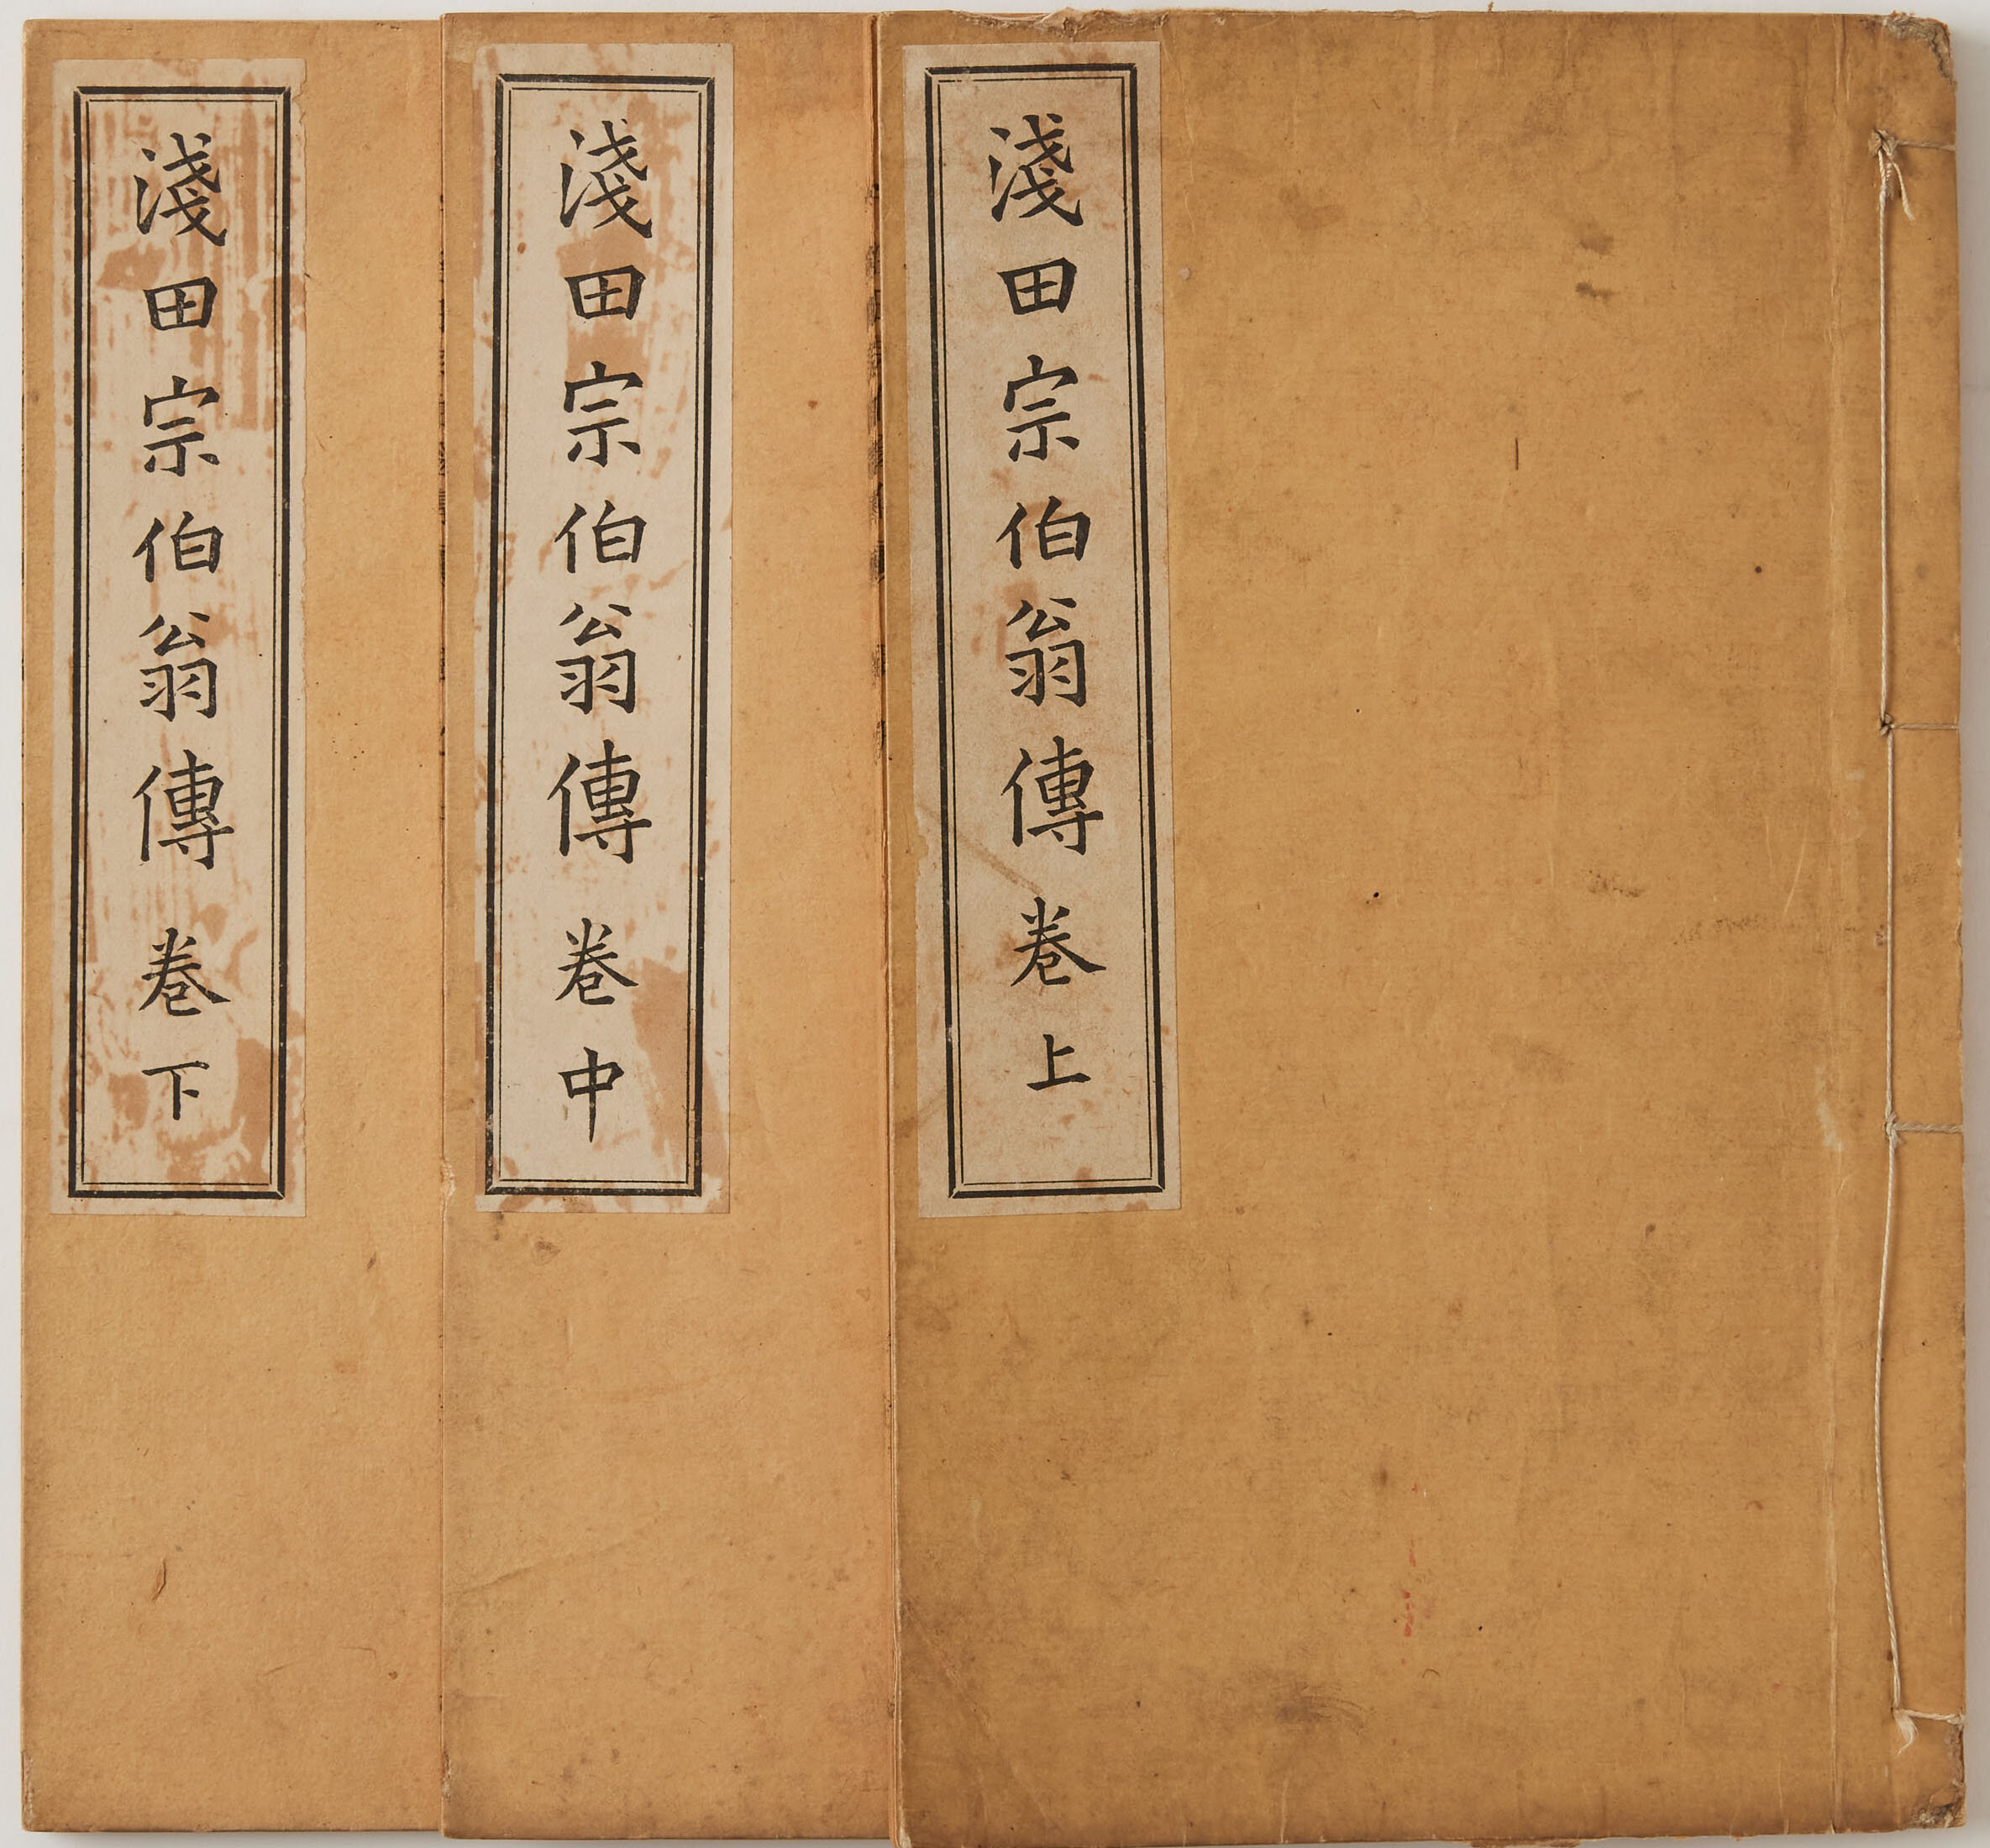 淺田宗伯翁傳 卷上
淺田宗伯翁傳 卷中
淺田宗伯翁傳 卷下